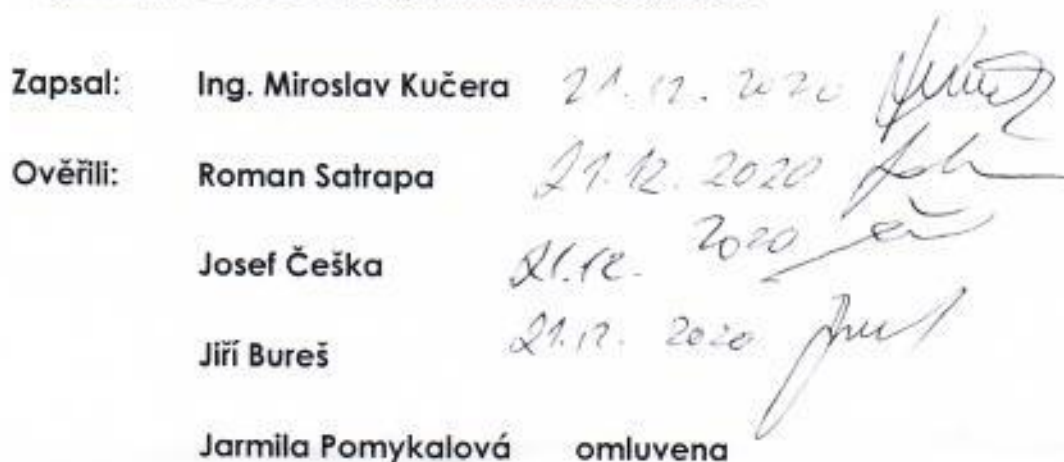 Zapsal: Ing. Miroslav Kučera 21.12. 2020
Ověřili: Roman Satrapa 21.12. 2020
Josef Češka 21.12. 2020
Jiří Bureš 21.12. 2020
Jarmila Pomykalová omluvena